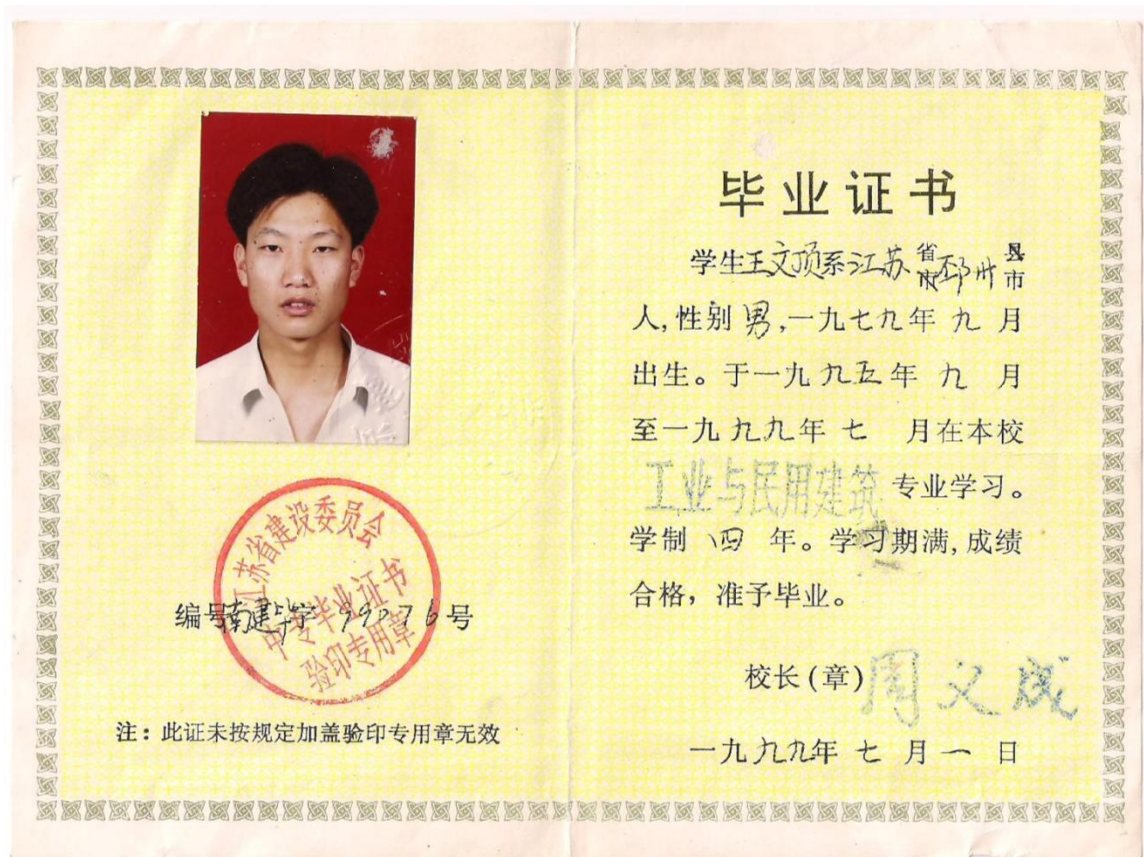 江苏省建设委员会
中专毕业证书
验印专用章
编号南建毕字99076号
注：此证未按规定加盖验印专用章无效
毕业证书
学生王文顶系江苏省市邳州县市
人，性别男，一九七九年九月
出生。于一九九五年九月
至一九九九年七月在本校
工业与民用建筑专业学习。
学制四年。学习期满，成绩
合格，准予毕业。
校长（章）周义成
一九九九年七月一日